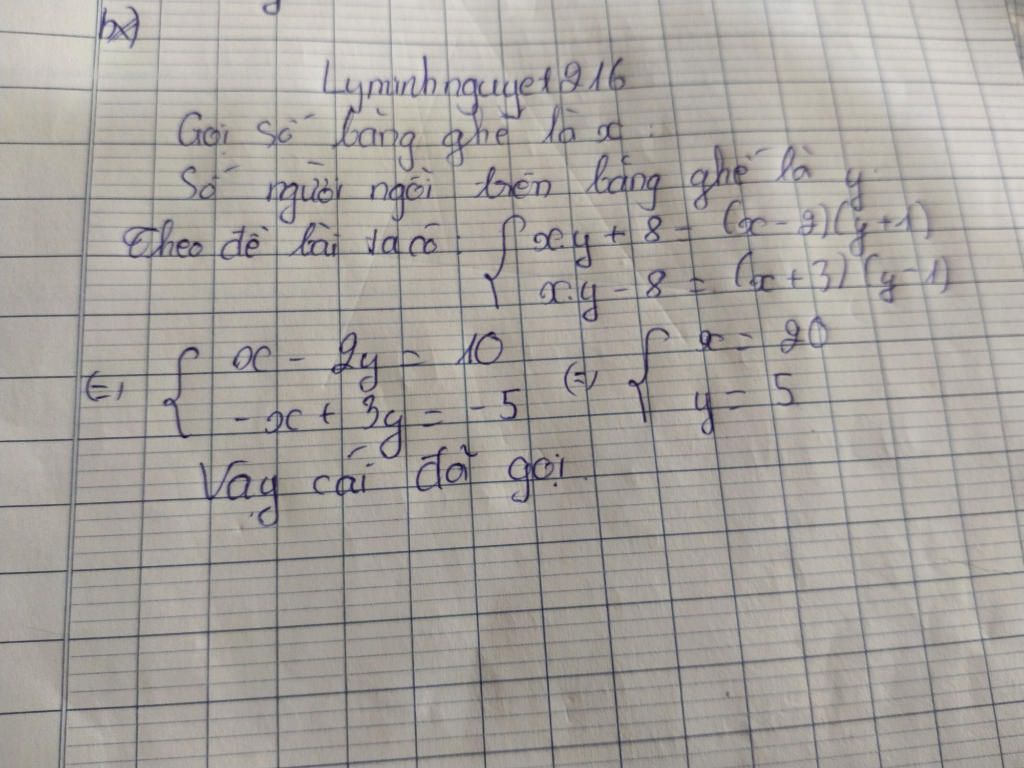 b)
Lyminhnguyet216
Gọi số băng ghế là x
Số người ngồi trên băng ghế là y
Theo đề bài ta có { x.y + 8 = (x - 2)(y + 1)
x.y - 8 = (x + 3)(y - 1)
⇔ { x - 2y = 10 ⇔ { x = 20
-x + 3y = -5 y = 5
Vậy cái đã gọi